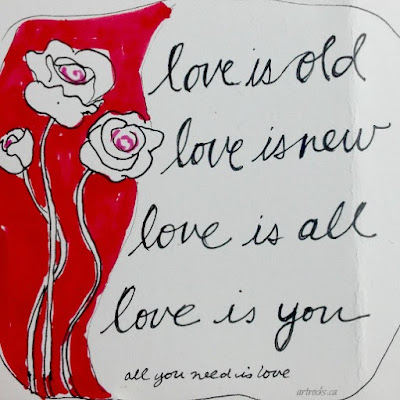 love is old
love is new
love is all
love is you
all you need is love
artrocks.ca